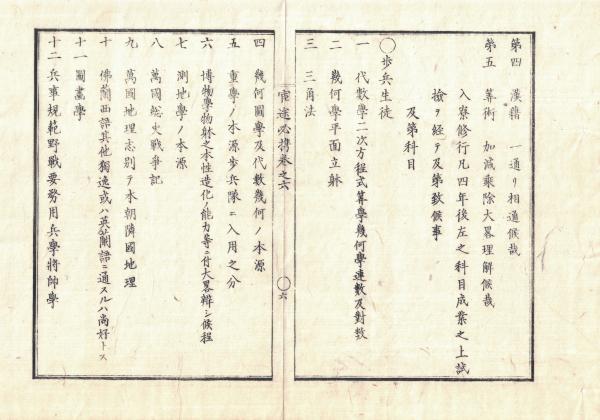 第四 漢籍 一通リ相通候哉
第五 算術 加減乘除大畧理解候哉
入寮修行凡四年後左之科目成業之上試
撿ヲ経テ及第致候事
及第科目
〇歩兵生徒
一 代數學二次方程式算學幾何學連數及對數
二 幾何學平面立躰
三 三角法
官途必携卷之六
〇六
四 幾何圖學及代數幾何ノ本源
五 重學ノ本源歩兵隊ニ入用之分
六 博物學物躰之本性造化ノ能力等ニ付大畧辨シ候程
七 測地學ノ本源
八 萬國総史戰爭記
九 萬國地理志別テ本朝隣國地理
十 佛蘭西語其他獨逸或ハ英蘭語ニ通スルハ尚好トス
十一 圖畫學
十二 兵軍規範野戰要務用兵學將帥學